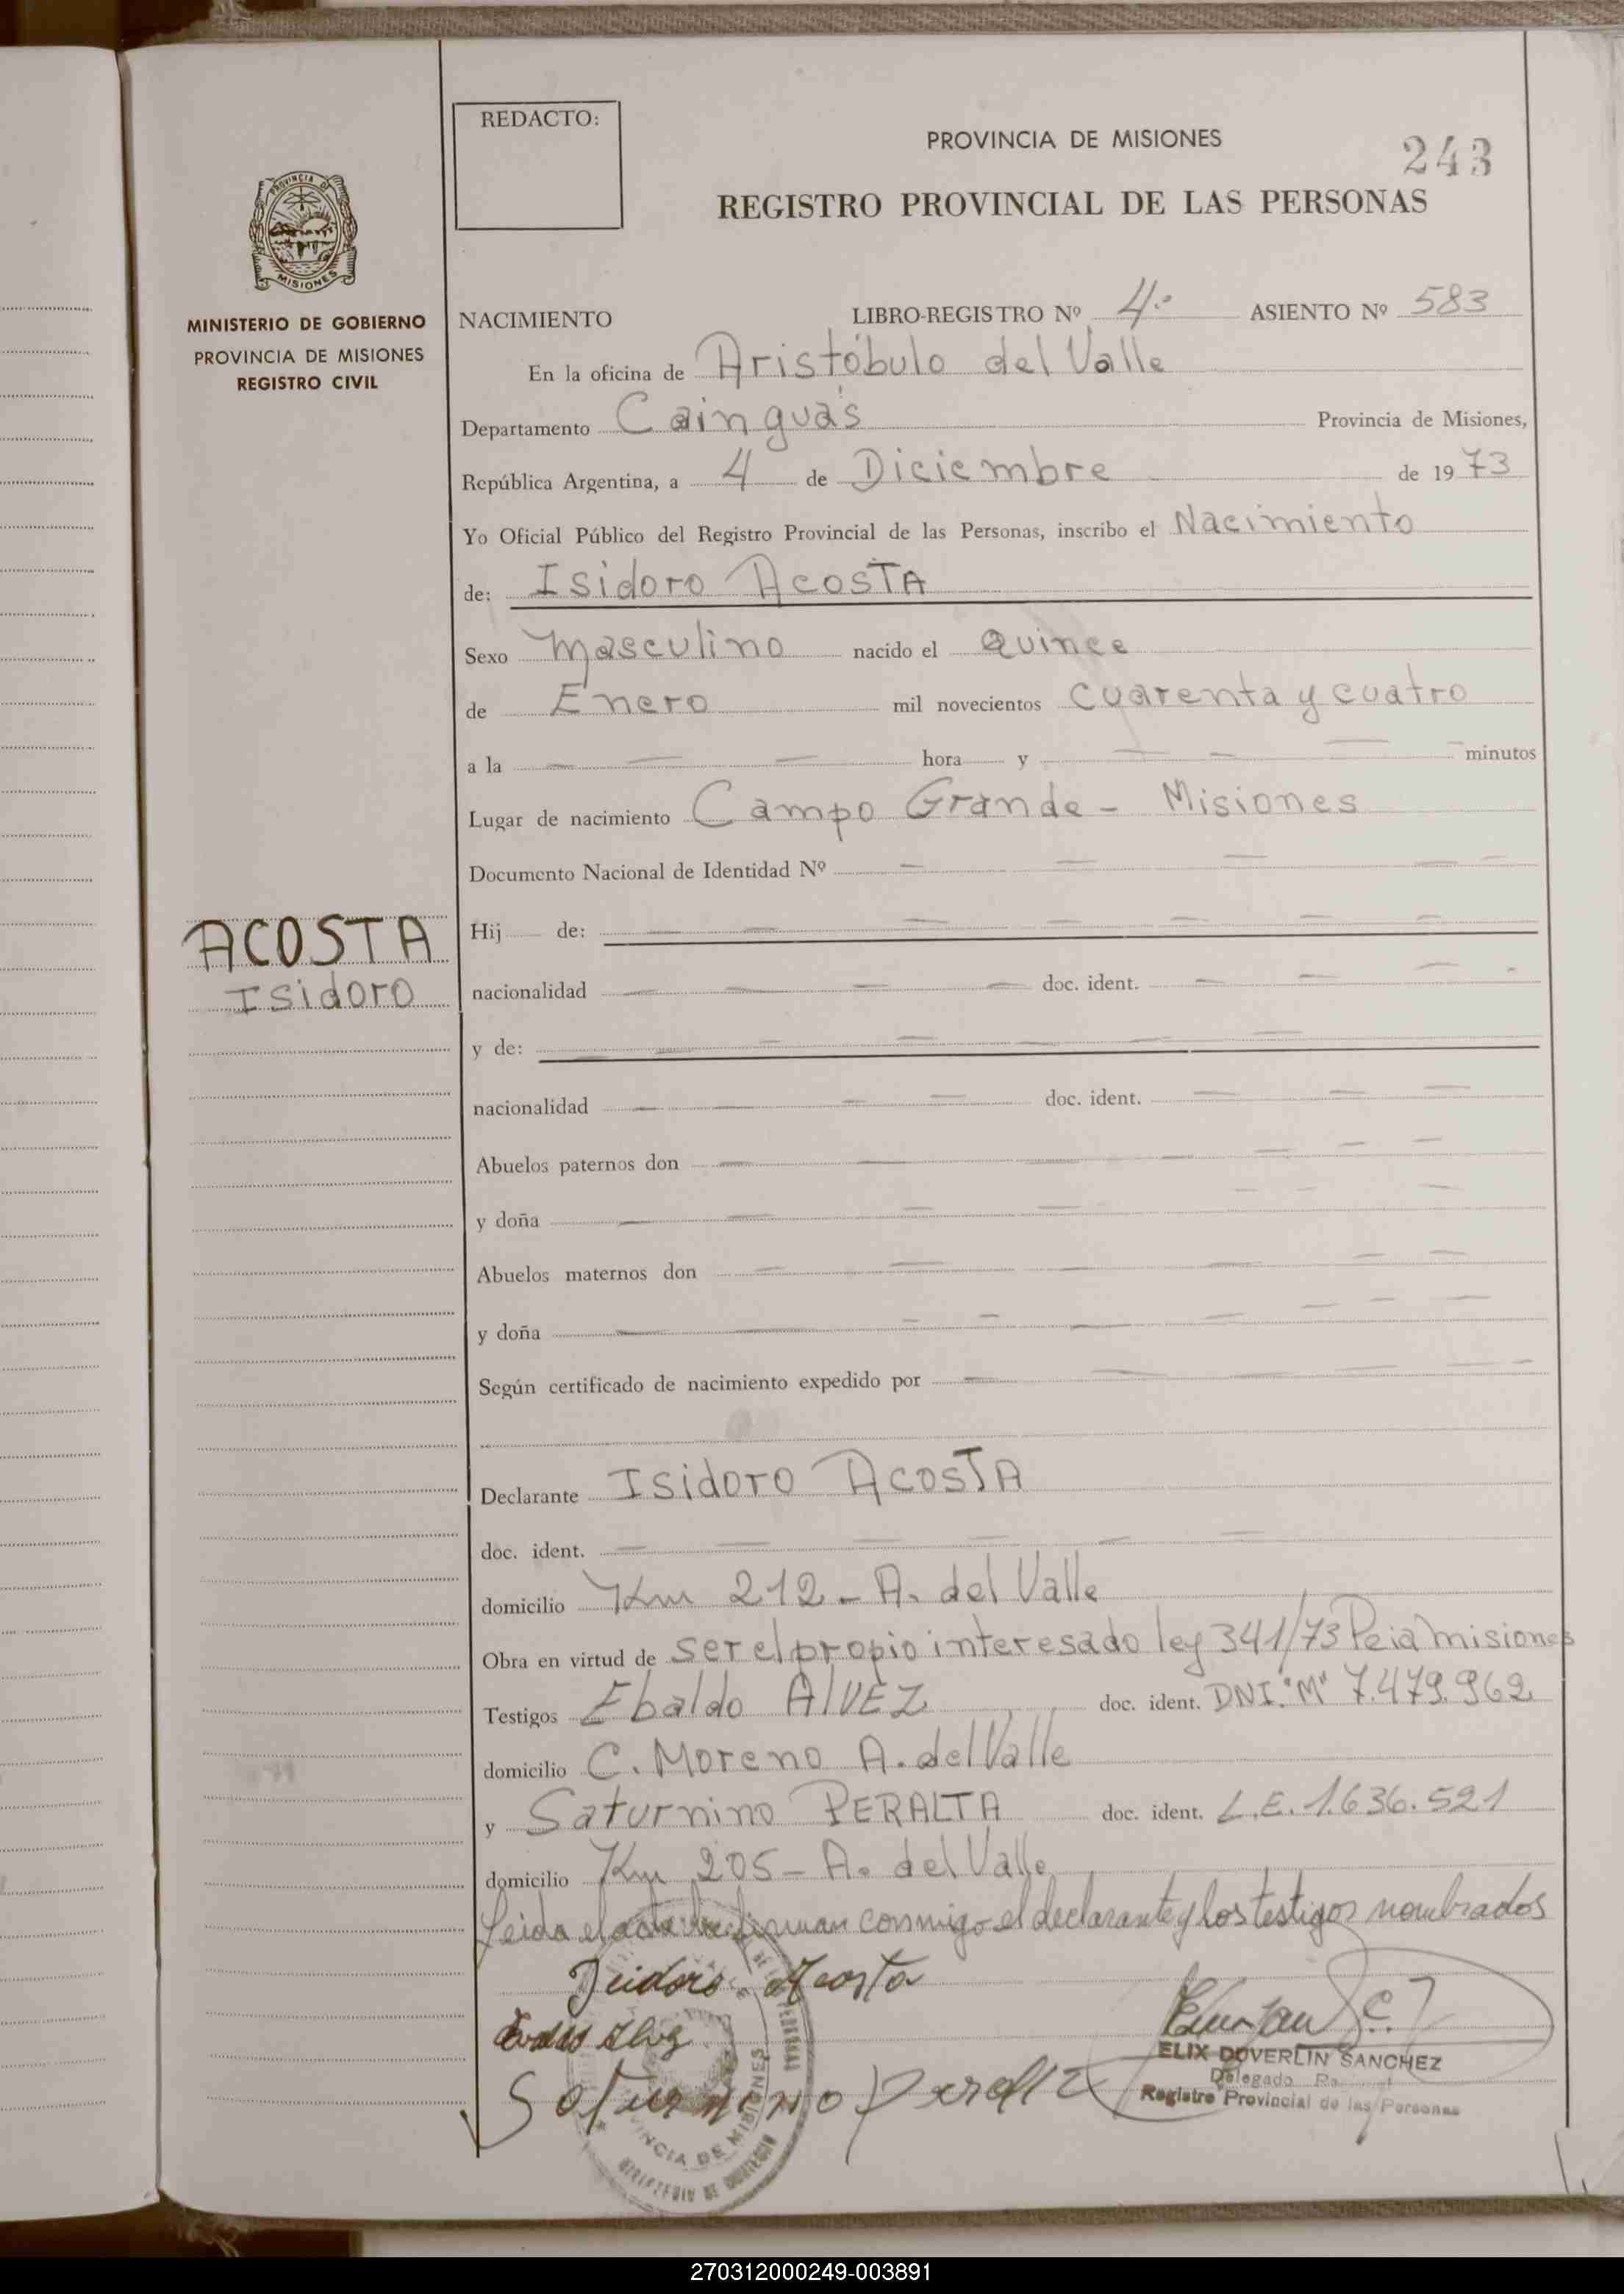 REDACTO:
PROVINCIA DE MISIONES
243
REGISTRO PROVINCIAL DE LAS PERSONAS
PROVINCIA DE
MISIONES
MINISTERIO DE GOBIERNO
PROVINCIA DE MISIONES
REGISTRO CIVIL
NACIMIENTO LIBRO-REGISTRO Nº 4º ASIENTO Nº 583
En la oficina de Aristóbulo del Valle
Departamento Cainguás Provincia de Misiones,
República Argentina, a 4 de Diciembre de 1973
Yo Oficial Público del Registro Provincial de las Personas, inscribo el Nacimiento
de: Isidoro ACOSTA
Sexo Masculino nacido el Quince
de Enero mil novecientos cuarenta y cuatro
a la — — — hora y — — — — minutos
Lugar de nacimiento Campo Grande - Misiones
Documento Nacional de Identidad Nº — — — — —
ACOSTA
Isidoro
Hij de: — — — — — — —
nacionalidad — — — — doc. ident. — — — -
y de: — — — — — — —
nacionalidad — — — — doc. ident. — — —
Abuelos paternos don — — — — — —
y doña — — — — — —
Abuelos maternos don — — — — — —
y doña — — — — — — — — —
Según certificado de nacimiento expedido por — — — — —
Declarante Isidoro ACOSTA
doc. ident. — — — — — —
domicilio Km 212 - A. del Valle
Obra en virtud de ser el propio interesado ley 341/73 Pcia Misiones
Testigos Ebaldo ALVEZ doc. ident. DNI. "M" 7.479.962
domicilio C. Moreno A. del Valle
y Saturnino PERALTA doc. ident. L.E. 1.636.521
domicilio Km 205 - A. del Valle
Leida el acta la firman conmigo el declarante y los testigos nombrados
Isidoro Acosta
Saturnino Peralta
ELIX DOVERLIN SANCHEZ
Delegado
Registro Provincial de las Personas
PROVINCIA DE MISIONES
MINISTERIO DE GOBIERNO
270312000249-003891